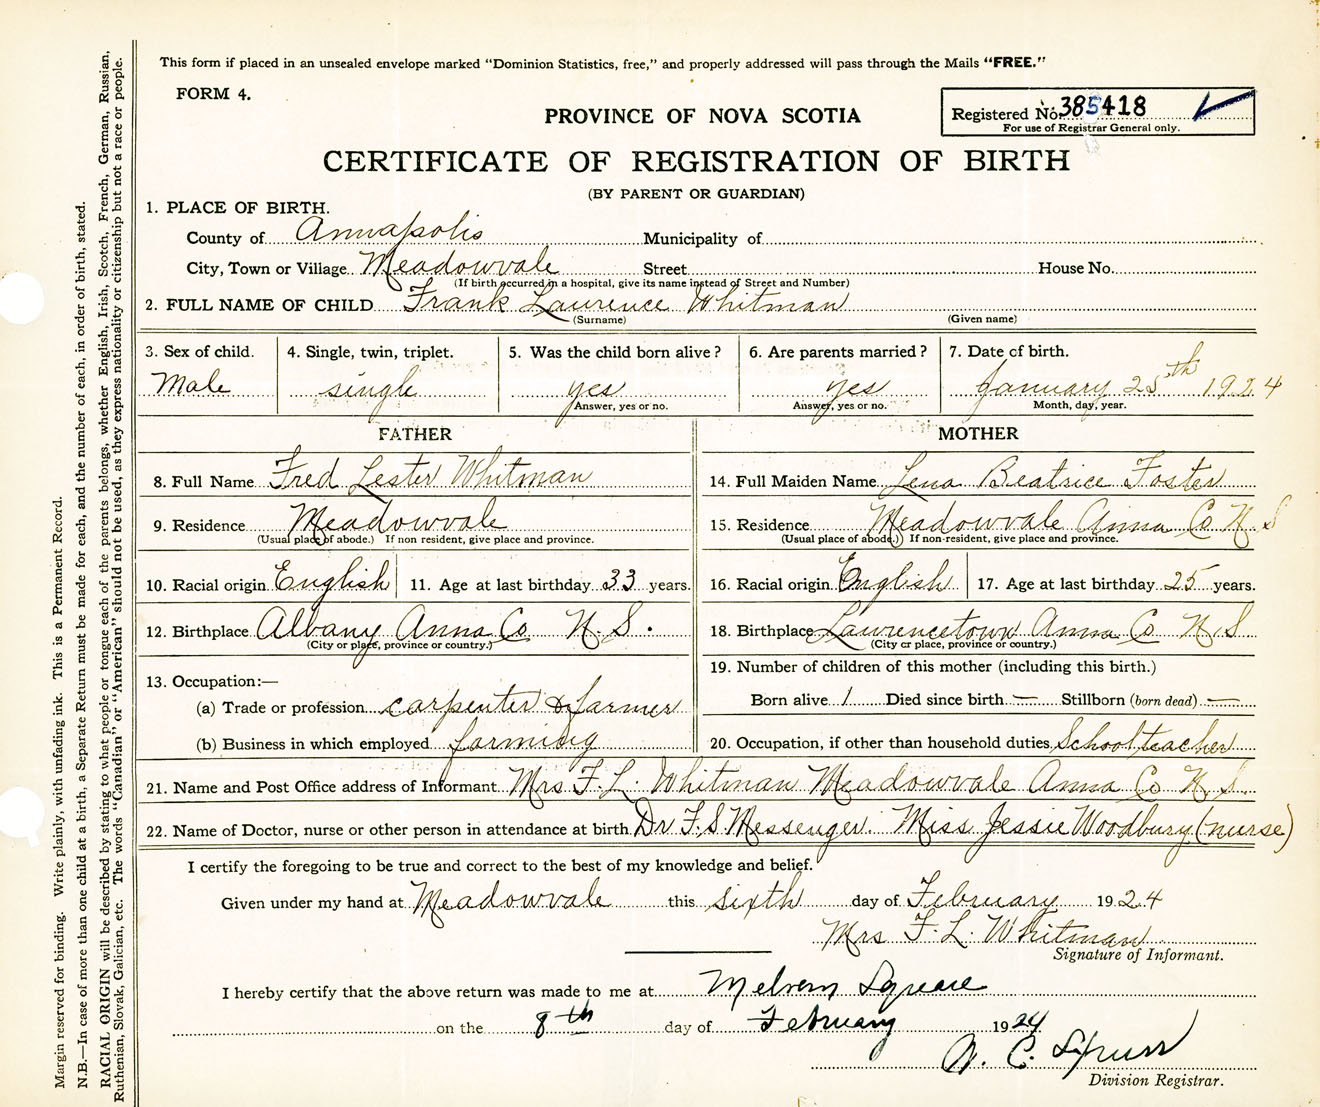 This form if placed in an unsealed envelope marked "Dominion Statistics, free," and properly addressed will pass through the Mails "FREE."
FORM 4.
Registered No. 385418
For use of Registrar General only.
PROVINCE OF NOVA SCOTIA
CERTIFICATE OF REGISTRATION OF BIRTH
(BY PARENT OR GUARDIAN)
1. PLACE OF BIRTH.
County of Annapolis Municipality of
City, Town or Village Meadowvale Street House No.
(If birth occurred in a hospital, give its name instead of Street and Number)
2. FULL NAME OF CHILD Frank Lawrence Whitman
(Surname) (Given name)
3. Sex of child. 4. Single, twin, triplet. 5. Was the child born alive? 6. Are parents married? 7. Date of birth.
Male single yes yes January 25th 1924
Answer, yes or no. Answer, yes or no. Month, day, year.
FATHER MOTHER
8. Full Name Fred Lester Whitman 14. Full Maiden Name Lena Beatrice Foster
9. Residence Meadowvale 15. Residence Meadowvale Anna Co N S
(Usual place of abode.) If non resident, give place and province. (Usual place of abode.) If non-resident, give place and province.
10. Racial origin English 11. Age at last birthday 33 years. 16. Racial origin English 17. Age at last birthday 25 years.
12. Birthplace Albany Anna Co N. S. 18. Birthplace Lawrencetown Anna Co N. S
(City or place, province or country.) (City or place, province or country.)
13. Occupation:— 19. Number of children of this mother (including this birth.)
(a) Trade or profession carpenter & farmer Born alive 1 Died since birth — Stillborn (born dead) —
(b) Business in which employed farming 20. Occupation, if other than household duties School teacher
21. Name and Post Office address of Informant Mrs F. L. Whitman Meadowvale Anna Co N. S.
22. Name of Doctor, nurse or other person in attendance at birth Dr F. S. Messenger. Miss Jessie Woodbury (nurse)
I certify the foregoing to be true and correct to the best of my knowledge and belief.
Given under my hand at Meadowvale this sixth day of February 1924
Mrs F. L. Whitman
Signature of Informant.
I hereby certify that the above return was made to me at Melvern Square
on the 8th day of February 1924
C. Spurr
Division Registrar.
Margin reserved for binding. Write plainly, with unfading ink. This is a Permanent Record.
N.B.—In case of more than one child at a birth, a Separate Return must be made for each, and the number of each, in order of birth, stated.
RACIAL ORIGIN will be described by stating to what people or tongue each of the parents belongs, whether English, Irish, Scotch, French, German, Russian,
Ruthenian, Slovak, Galician, etc. The words "Canadian" or "American" should not be used, as they express nationality or citizenship but not a race or people.